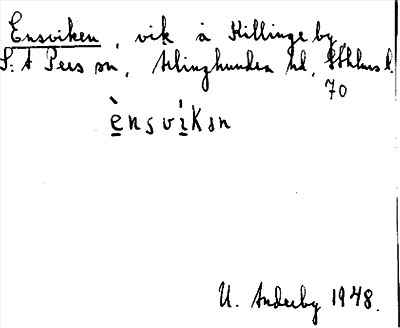 Ensviken, vik å Killinge by,
S:t Pers sn, Örlinghundra hd, Sthlms l.
70
è̱nsvi̱̍kən
U. Anderby 1948.